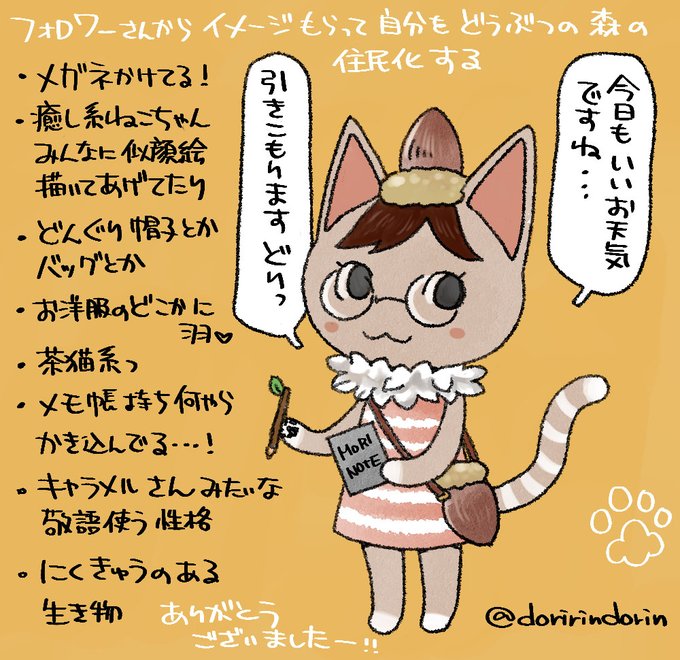 フォロワーさんから イメージもらって 自分を どうぶつの 森の
住民化する
・メガネかけてる!
・癒し系ねこちゃん
みんなに似顔絵
描いてあげてたり
・どんぐり帽子とか
バッグとか
・お洋服のどこかに
羽♥
・茶猫系っ
・メモ帳持ち何やら
かき込んでる…!
・キャラメルさんみたいな
敬語使う性格
・にくきゅうのある
生き物
ありがとう
ございましたー!!
今日もいいお天気
ですね…
引きこもりますどりっ
MORI
NOTE
@doririndorin